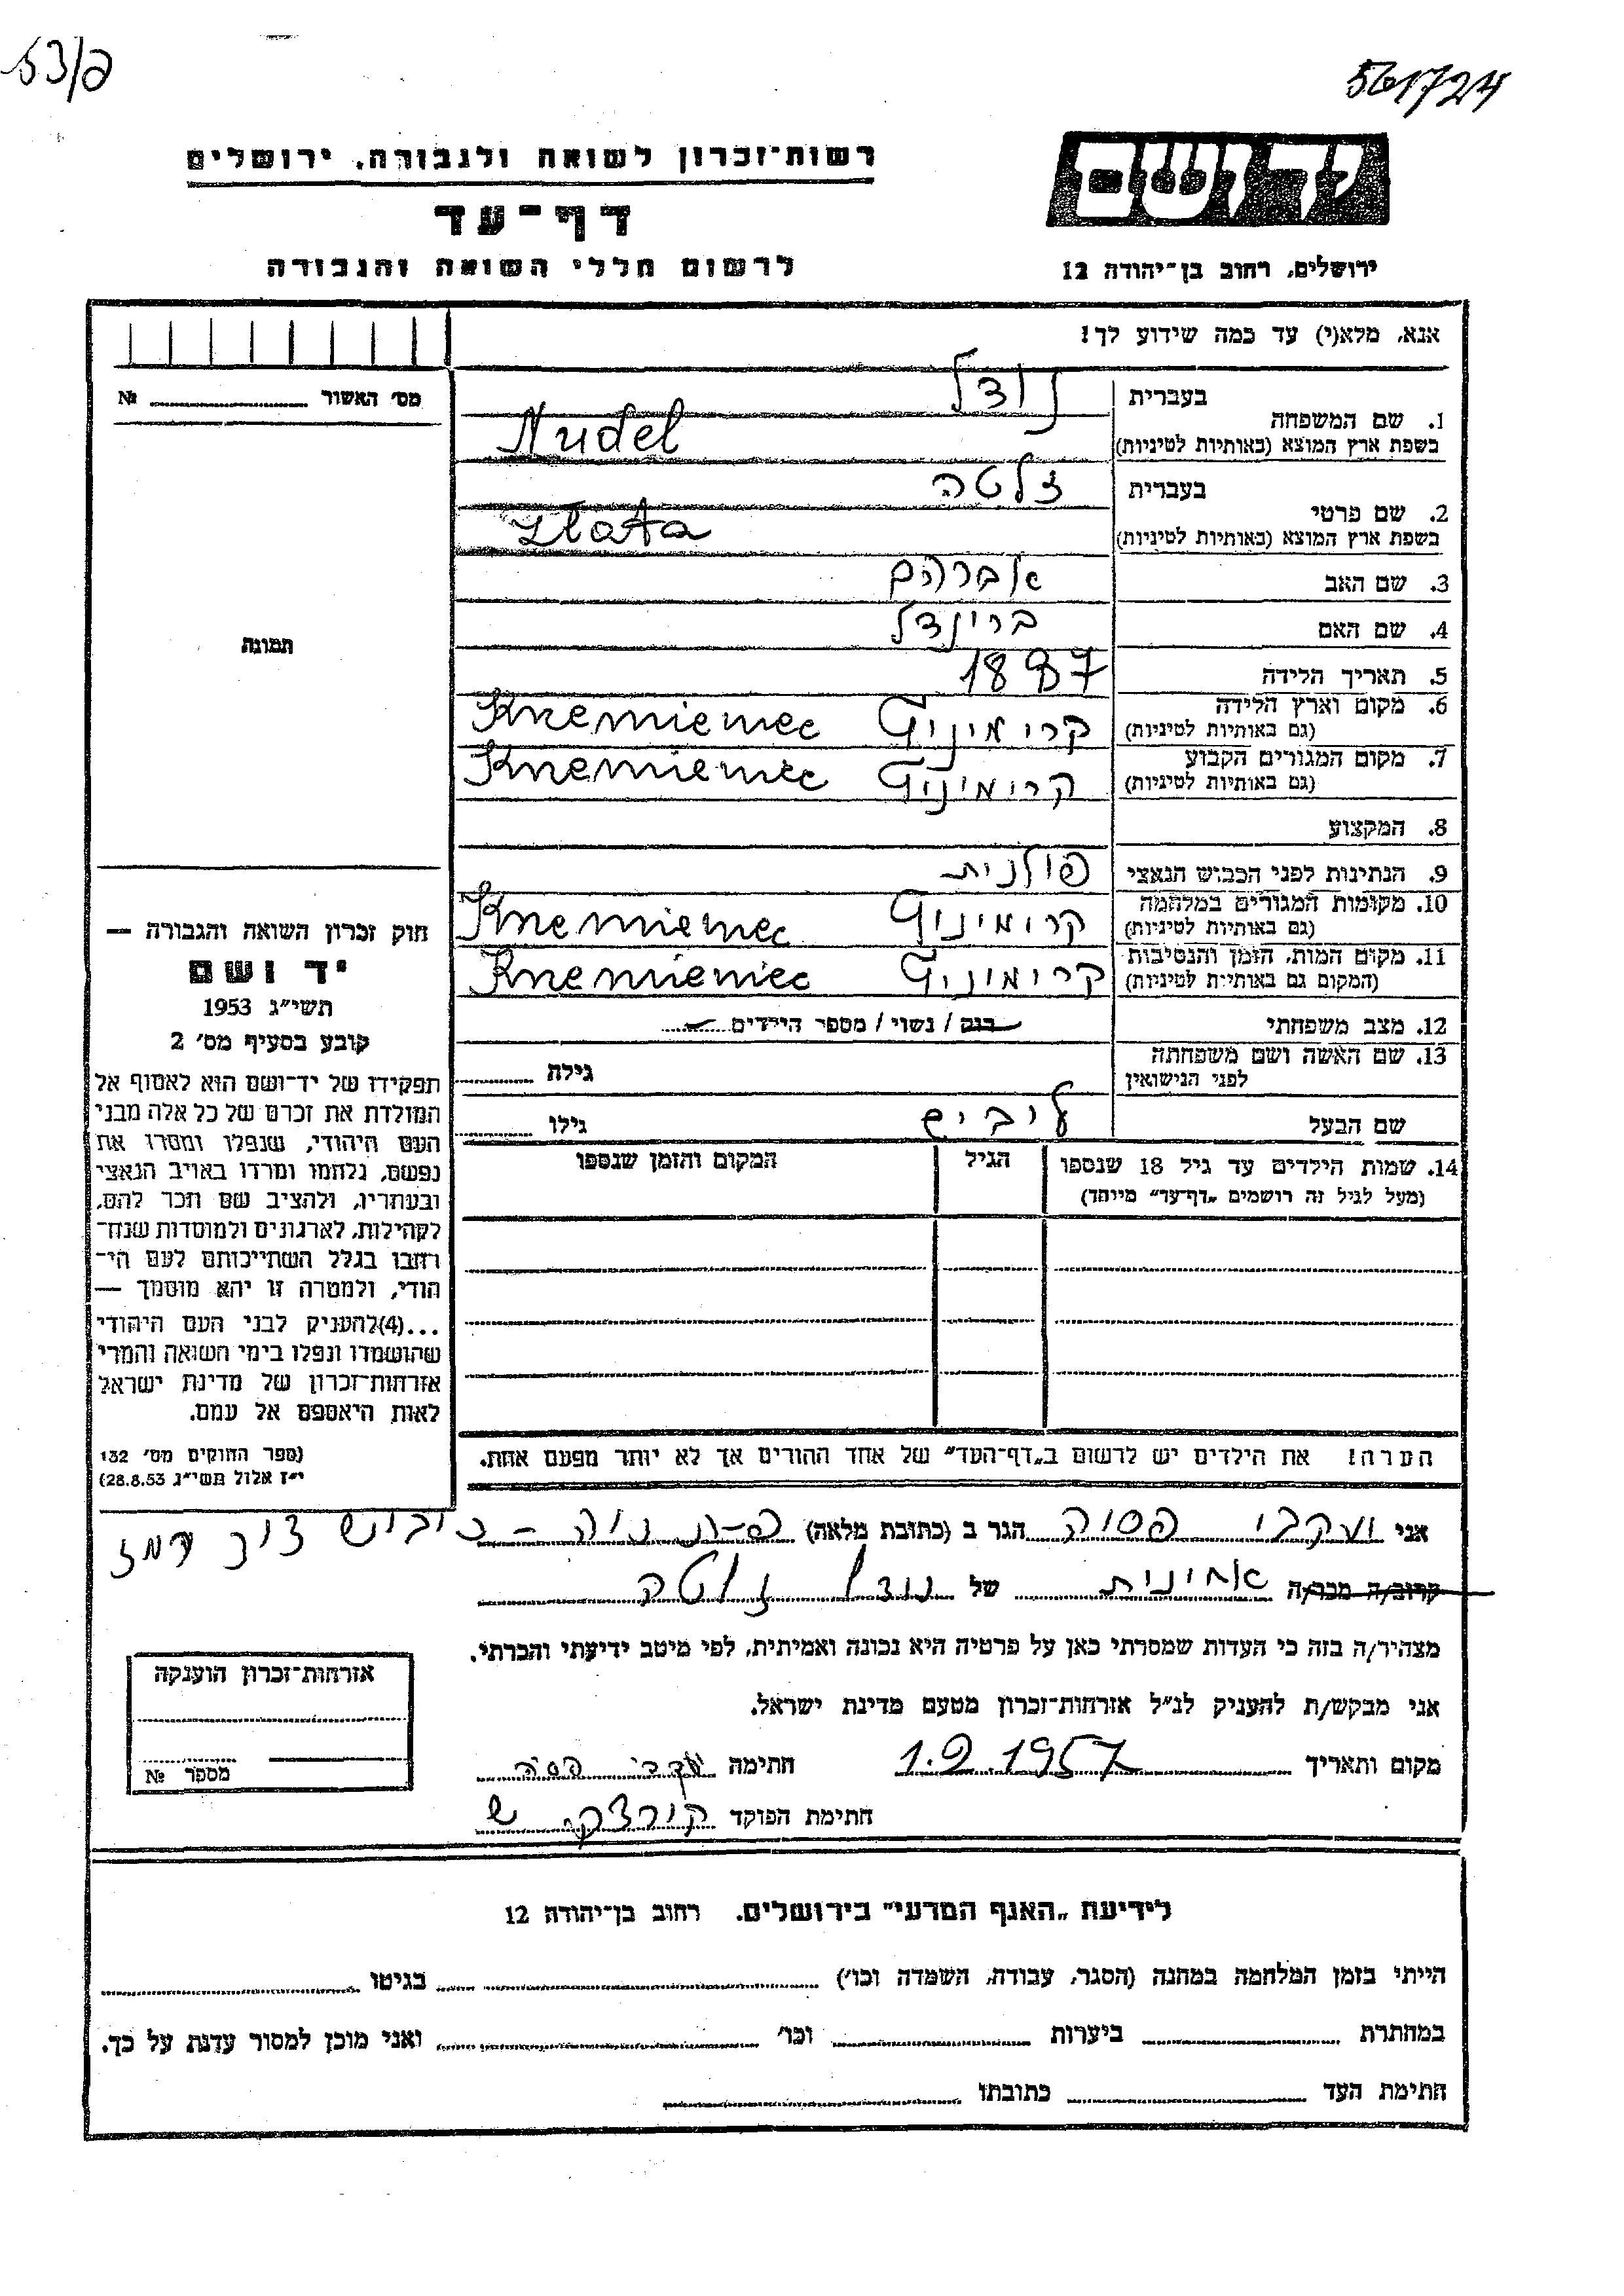 53/פ
561724
יד ושם
רשות־זכרון לשואה ולגבורה, ירושלים
דף־עד
לרשום חללי השואה והגבורה
ירושלים, רחוב בן־יהודה 12
אנא, מלא(י) עד כמה שידוע לך!
מס׳ האשור №
תמונה
1. שם המשפחה
בעברית נודל
בשפת ארץ המוצא (באותיות לטיניות) Nudel
2. שם פרטי
בעברית זלטה
בשפת ארץ המוצא (באותיות לטיניות) Zlata
3. שם האב אברהם
4. שם האם בריינדל
5. תאריך הלידה 1897
6. מקום וארץ הלידה קרימיניץ Kremieniec
(גם באותיות לטיניות)
7. מקום המגורים הקבוע קרימיניץ Kremieniec
(גם באותיות לטיניות)
8. המקצוע
9. הנתינות לפני הכבוש הנאצי פולנית
10. מקומות המגורים במלחמה קרימיניץ Kremieniec
(גם באותיות לטיניות)
11. מקום המות, הזמן והנסיבות קרימיניץ Kremieniec
(המקום גם באותיות לטיניות)
12. מצב משפחתי רווק / נשוי / מספר הילדים
13. שם האשה ושם משפחתה
לפני הנישואין גילה
שם הבעל לייביש גילו
14. שמות הילדים עד גיל 18 שנספו הגיל המקום והזמן שנספו
(מעל לגיל זה רושמים „דף־עד" מיוחד)
הערה! את הילדים יש לרשום ב„דף־העד" של אחד ההורים אך לא יותר מפעם אחת.
חוק זכרון השואה והגבורה —
יד ושם
תשי״ג 1953
קובע בסעיף מס׳ 2
תפקידו של יד־ושם הוא לאסוף אל
המולדת את זכרם של כל אלה מבני
העם היהודי, שנפלו ומסרו את
נפשם, נלחמו ומרדו באויב הנאצי
ובעוזריו, ולהציב שם וזכר להם,
לקהילות, לארגונים ולמוסדות שנח־
רבו בגלל השתייכותם לעם הי־
הודי, ולמטרה זו יהא מוסמך —
...(4)להעניק לבני העם היהודי
שהושמדו ונפלו בימי השואה והמרי
אזרחות־זכרון של מדינת ישראל
לאות היאספם אל עמם.
(ספר החוקים מס׳ 132
י״ז אלול תשי״ג 28.8.53)
אני יעקבי פסיה הגר ב (כתובת מלאה)
קרוב/ה מכר/ה אחינית של נודל זלטה
מצהיר/ה בזה כי העדות שמסרתי כאן על פרטיה היא נכונה ואמיתית, לפי מיטב ידיעתי והכרתי.
אני מבקש/ת להעניק לנ״ל אזרחות־זכרון מטעם מדינת ישראל.
מקום ותאריך 1.9.1957 חתימה יעקבי פסיה
חתימת הפוקד
אזרחות־זכרון הוענקה
מספר №
לידיעת „האגף המדעי" בירושלים, רחוב בן־יהודה 12
הייתי בזמן המלחמה במחנה (הסגר, עבודה, השמדה וכו׳) בגיטו
במחתרת ביערות וכו׳ ואני מוכן למסור עדות על כך.
חתימת העד כתובתו